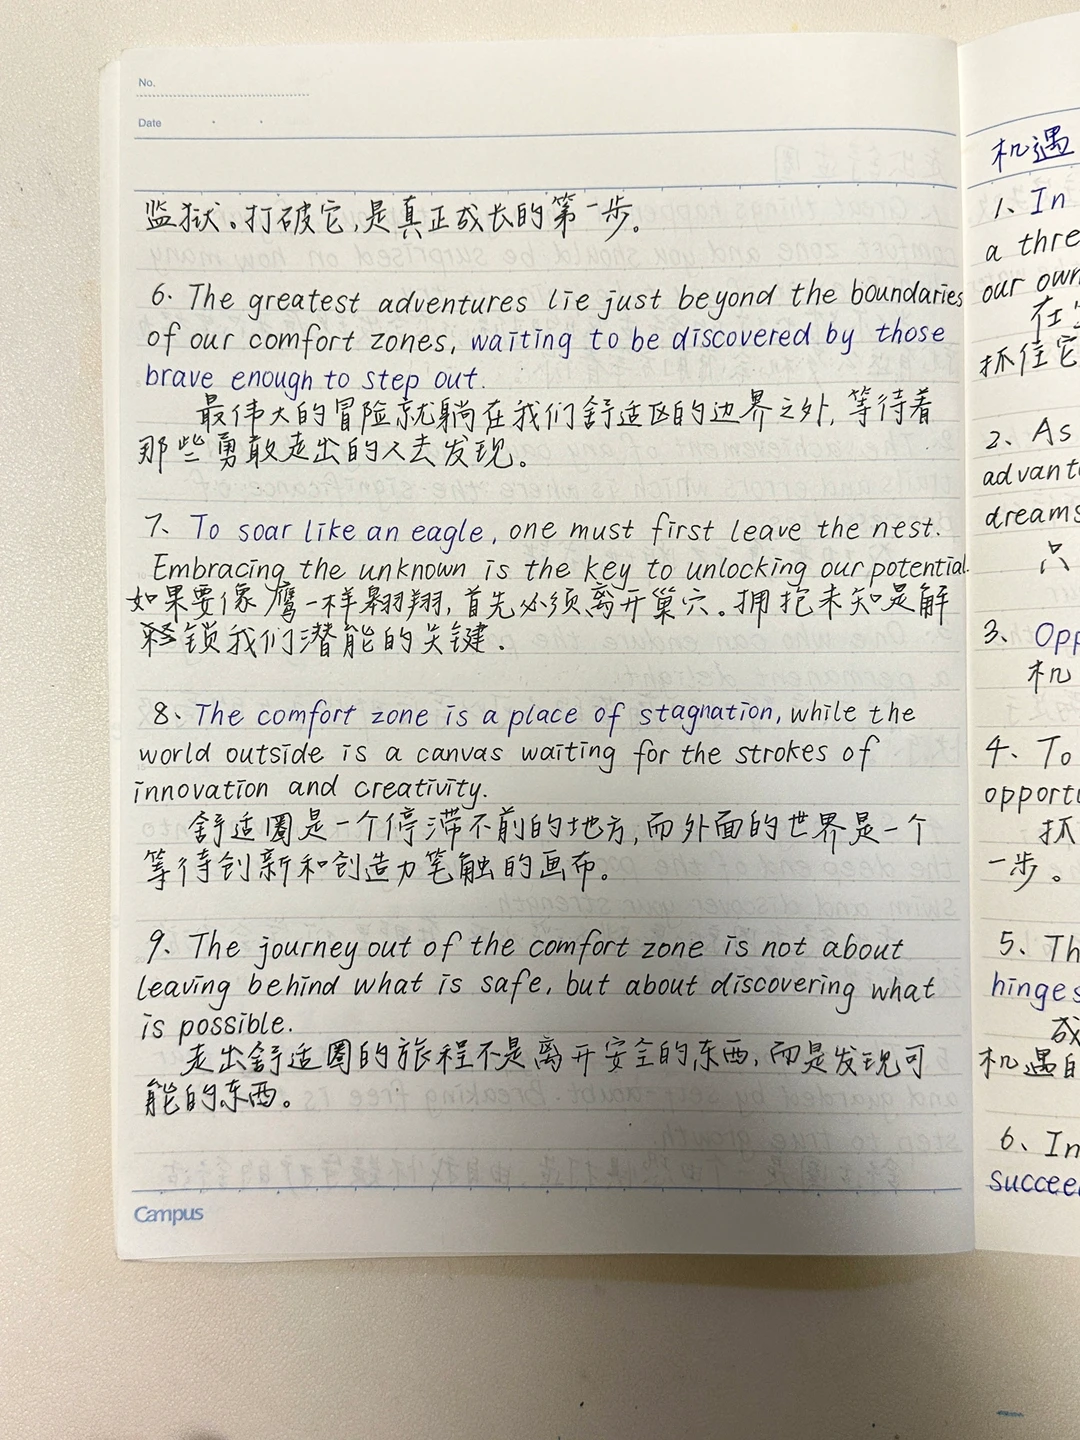 No.
Date
监狱。打破它,是真正成长的第一步。
6. The greatest adventures lie just beyond the boundaries
of our comfort zones, waiting to be discovered by those
brave enough to step out.
最伟大的冒险就躺在我们舒适区的边界之外,等待着
那些勇敢走出的人去发现。
7、To soar like an eagle, one must first leave the nest.
Embracing the unknown is the key to unlocking our potential.
如果要像鹰一样翱翔,首先必须离开巢穴。拥抱未知是解
锁我们潜能的关键.
8、The comfort zone is a place of stagnation, while the
world outside is a canvas waiting for the strokes of
innovation and creativity.
舒适圈是一个停滞不前的地方,而外面的世界是一个
等待创新和创造力笔触的画布。
9、The journey out of the comfort zone is not about
leaving behind what is safe, but about discovering what
is possible.
走出舒适圈的旅程不是离开安全的东西,而是发现可
能的东西。
Campus
机遇
1、In
a thre
our own
在
抓住它
2、As
advant
dreams
只
3、Opp
机
4、To
opportu
抓
一步。
5、Th
hinges
成
机遇的
6、In
succee